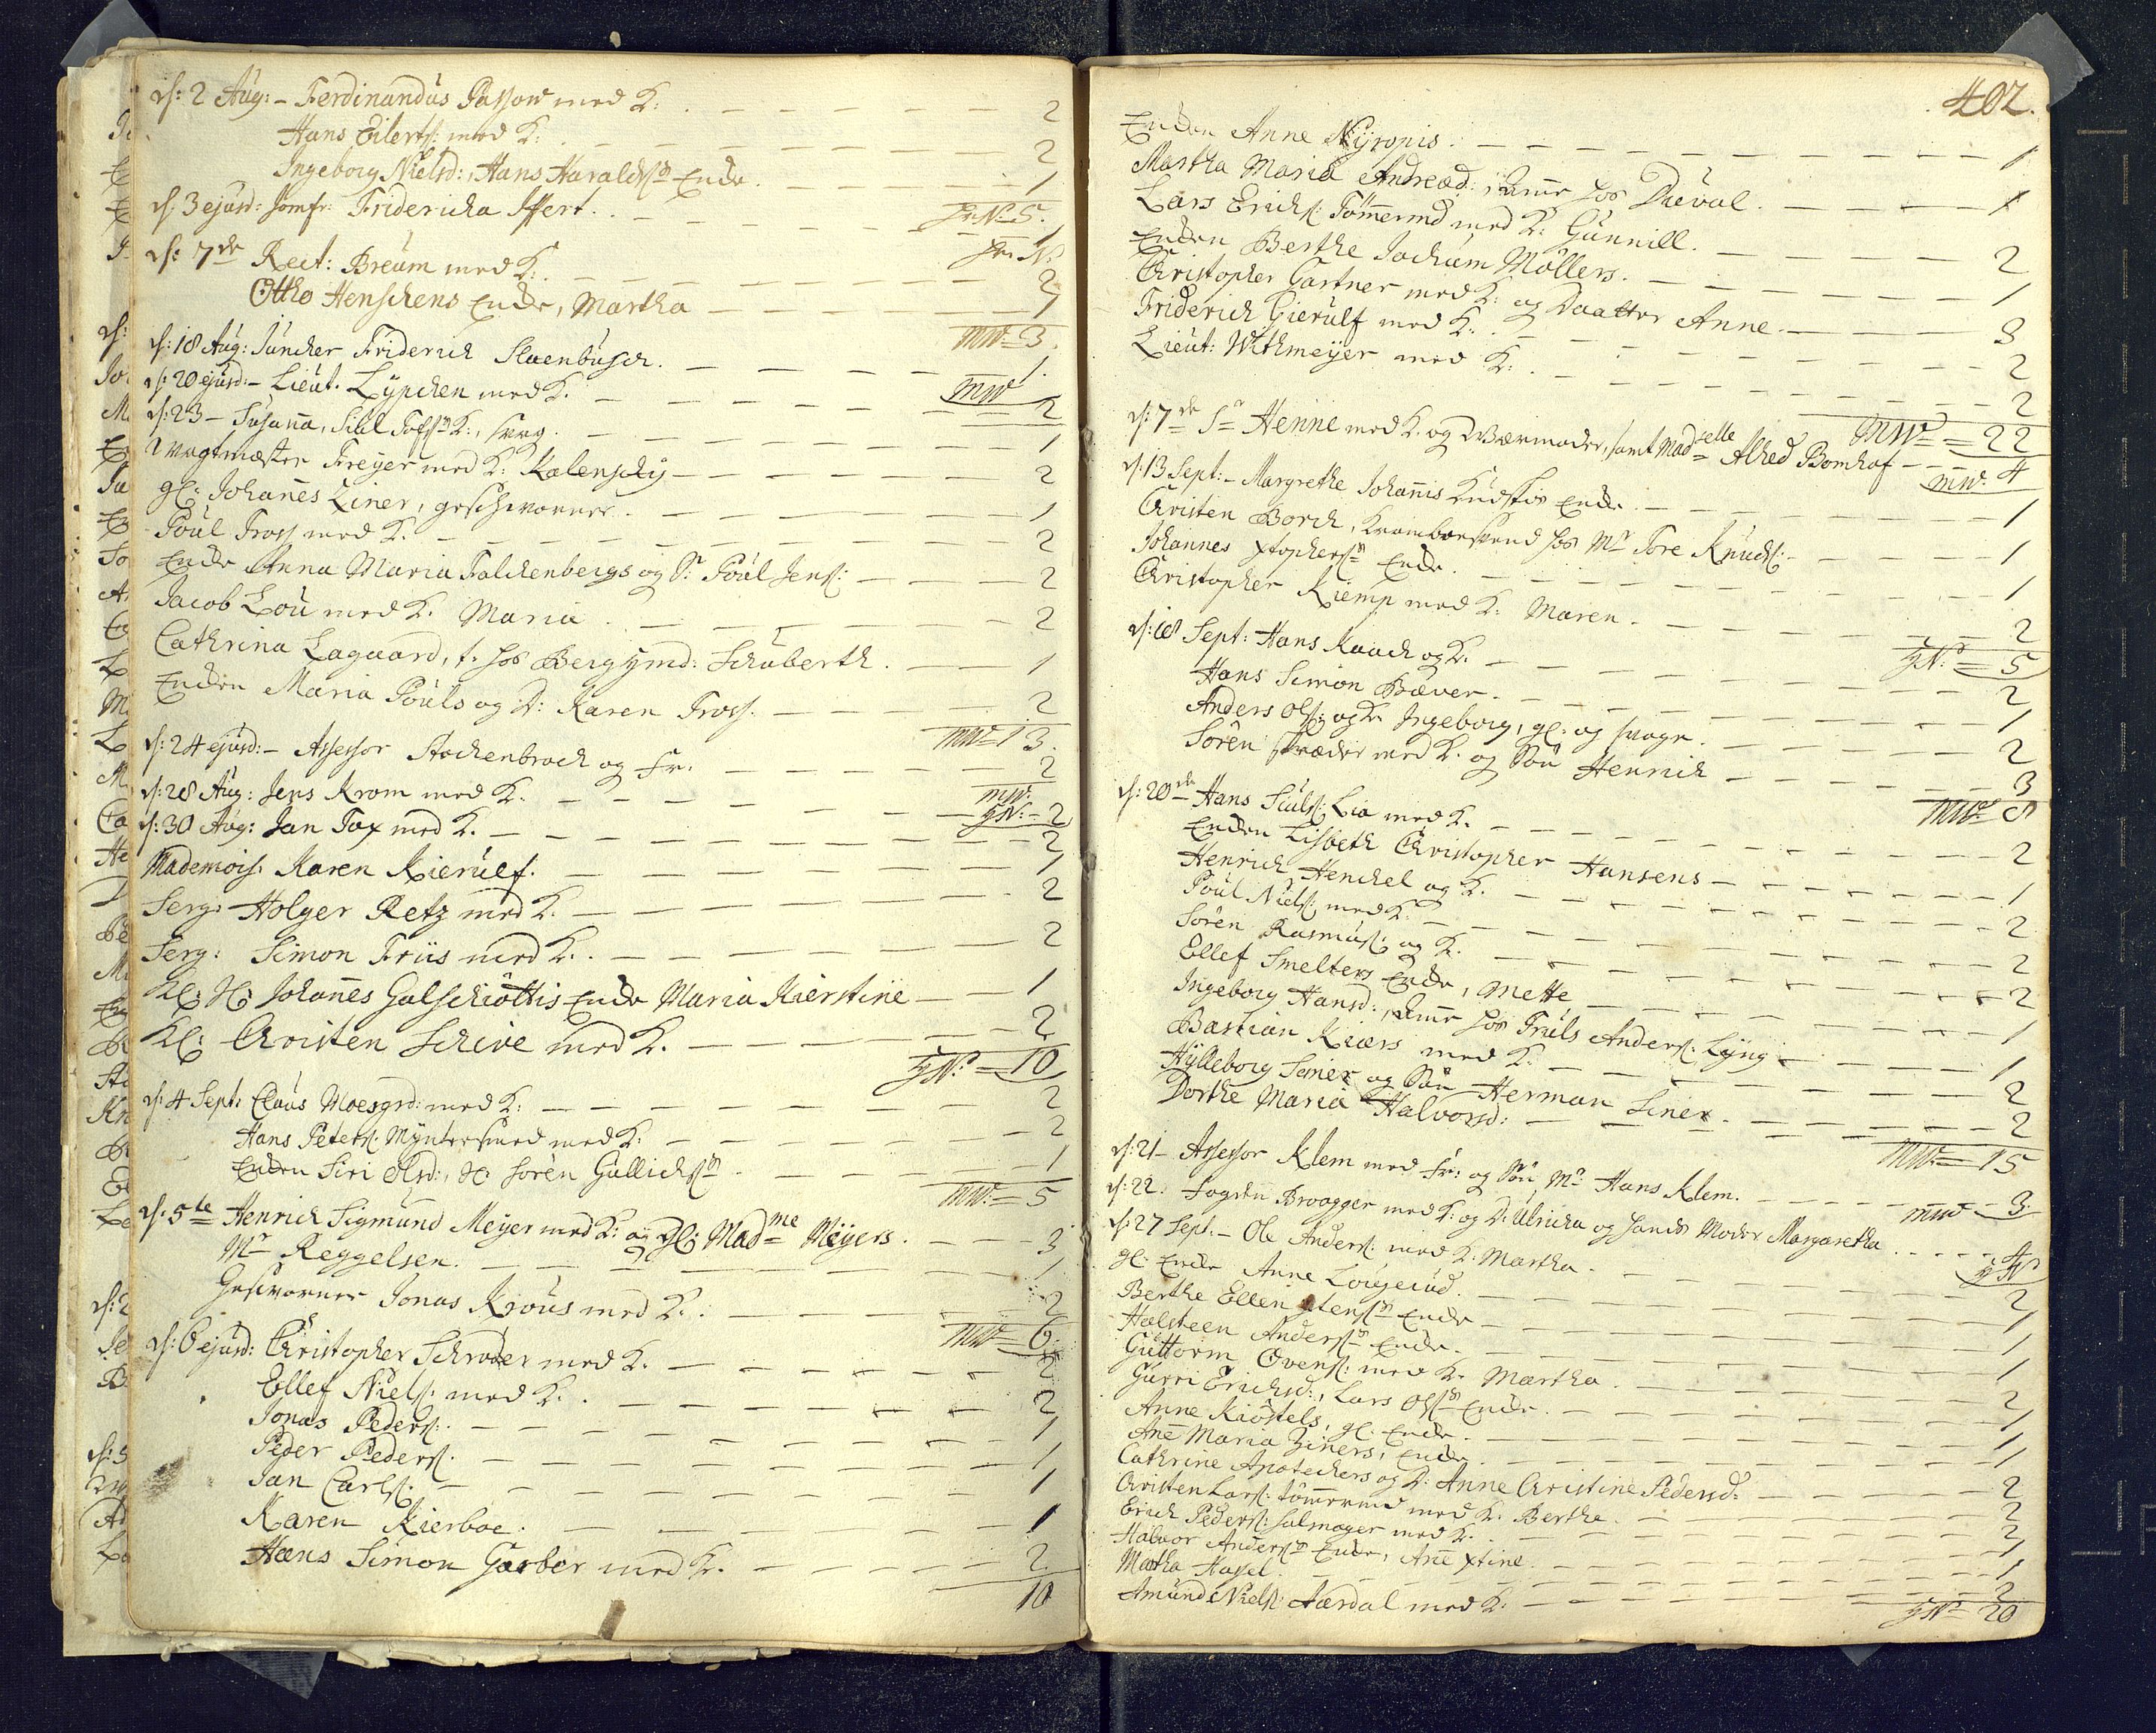 d: 2 Aug: - Ferdinandus Passow med K: 2
Hans Eilerts: med K: 2
Ingeborg Nielsd:, Hans Haralds&shy;sn Encke 1
JW: 5.
d: 3 ejusd: Jomfr: Fridericha Iffert. 1
d: 7de Rect: Breum med K: 2
Otho Henschens Encke, Martha 1
MW= 3.
d: 18 Aug: Juncker Friderich Stuenbusch. 1.
d: 20 ejusd: - Lieut. Lypchen med K. 2
MW
d: 23 - Susanna, K:, svag. 1
Vagtmæster Freyer med K: Kalensky 2
gl: Johannes Ziner, geschworner. 1
Poul Tross med K. 2
Encke Anna Maria Falckenbergs og Sr Poul Jens: 2
Jacob Lou med K. Maria 2
Cathrina Lagaard, t. hos Bergymd: Schuberth. 1
Encken Maria Pouls og D: Karen Tross. 2
MW= 13.
d: 24 ejusd: - Assessor Stockenbroch og Fr: 2
MW:
d: 28 Aug: Jens Krom med K. 2
d: 30 Aug: Jan Fax med K. 2
Mademois. Karen Kierulf. 1
Serg: Holger Retz med K. 2
Serg: Simon Friis med K. 2
Kl: H: Johannes Galschiöttis Encke Maria Kierstine 1
Kl: Christen Schive med K. 2
= 10
d: 4 Sept: Claus Moesgrd: med K: 2
Hans Peters: Myntersmed med K: 2
Encken Siri Olsd:, H: Sören Gullichssn 1
MW: = 5
d: 5te Henrich Sigmund Meyer med K: og gl: Madme Meyers. 3
Mr Reggelsen. 1
Geschworner Jonas Krous med K. 2
MW= 6.
d: 6 ejusd: Christopher Schrøder med K. 2
Ellef Niels: med K. 2
Jonas Peders: 1
Peder Peders: 1
Jan Carls: 1
Karen Kierboe. 1
Hans Simon Garber med K. 2
10
402.
Encken Anne Nyropis. 1
Martha Maria Andread: Amme hos Duval. 1
Lars Erichs: Tømmermd med K: Gunnill. 2
Encken Berthe Jochum Möllers. 1
Christopher Gartner med K: og Daatter Anne. 3
Friderich Gierulf med K. 2
Lieut: Withmeyer med K. 2
MW = 22
d: 7de Sr Henne med K. og Værmoder, samt Madselle Alhed Bomhof 4
MW.
d: 13 Sept: - Margrethe Johannis Kudskis Encke 1
Christen Borch, Krambodsvend hos Mr Tore Knuds: 1
Johannes Xtopherssn Encke. 1
Christopher Kiemp med K: Maren. 2
= 5
d: 18 Sept: Hans Kaach og K. 2
Hans Simon Bæver. 1
Anders Ols: og K. Ingeborg, gl: og svage. 2
Sören Skræder med K. og Sön Henrich 3
MW: 8
d: 20de Hans Siuls: Lia med K. 2
Encken Lisbeth Christopher Hansens 1
Henrich Henchel og K. 2
Poul Niels: med K. 2
Sören Rasmus: og K. 2
Ellef Smelters Encke, Mette 1
Ingeborg Hansd:, Amme hos Truls Anders: Lyng 1
Bastian Kiærs med K. 2
Hylleborg Seiner og Sön Herman Siner. 2
Dorthe Maria Halvorsd:
MW: = 15
d: 21 - Assessor Klem med Fr: og Sön Mr Hans Klem. 3
MW
d: 22. Fogden Brøgger med K: og D: Ulricha og hands Moder Margaretha 4
d: 27 Sept. - Ole Anders: med K. Martha. 2
gl: Encke Anne Lougerud. 1
Berthe Ellen Encke 1
Halsteen Anderssn Encke. 1
Guttorm Ovens: med K. Martha. 2
Gurri Erichsd:, Lars Olssn Encke. 1
Anne Kiöstels, gl. Encke. 1
Ane Maria Ziners, Encke. 1
Cathrine Apotechers og D: Anne Christine Pedersd: 2
Christen Lars: Tömmermd med K. Berthe. 2
Erich Peders: Salmager med K. 2
Halvor Anderssn Encke, Ane Xtine. 1
Martha Hassel. 1
Amund Niels: Aardal med K. 2
= 20